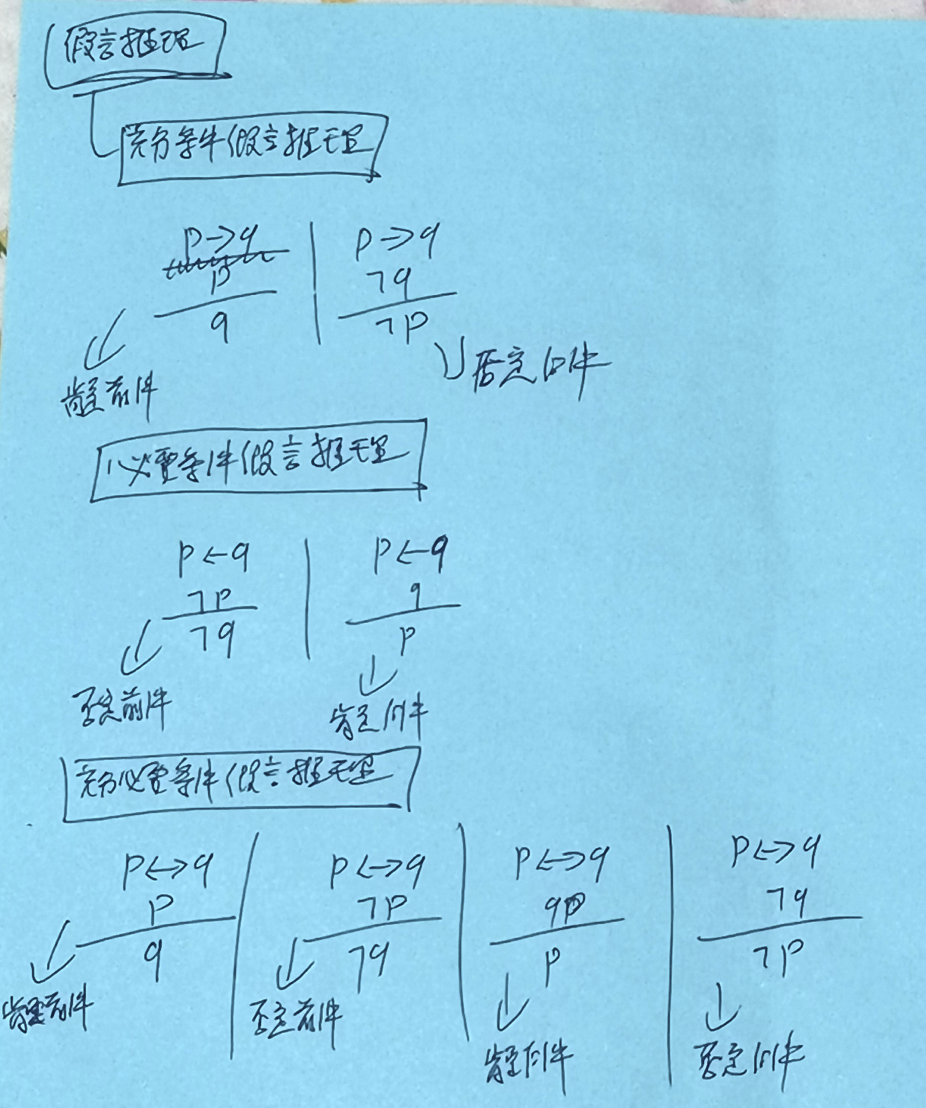 假言推理
充分条件假言推理
p→q
p
q
肯定前件
p→q
¬q
¬p
否定后件
必要条件假言推理
p←q
¬p
¬q
否定前件
p←q
q
p
肯定后件
充分必要条件假言推理
p↔q
p
q
肯定前件
p↔q
¬p
¬q
否定前件
p↔q
q
p
肯定后件
p↔q
¬q
¬p
否定后件